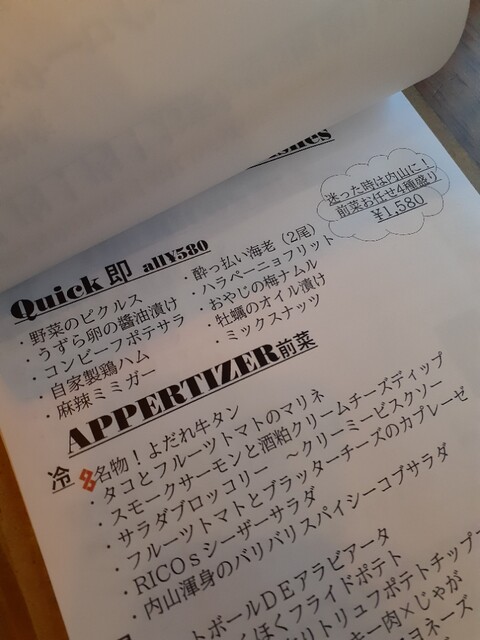 迷った時は内山に！
前菜お任せ4種盛り
¥1,580
Quick 即 all¥580
・野菜のピクルス
・うずら卵の醬油漬け
・コンビーフポテサラ
・自家製鶏ハム
・麻辣ミミガー
・酔っ払い海老（2尾）
・ハラペーニョフリット
・おやじの梅ナムル
・牡蠣のオイル漬け
・ミックスナッツ
APPERTIZER前菜
冷
名物！よだれ牛タン
・タコとフルーツトマトのマリネ
・スモークサーモンと酒粕クリームチーズディップ
・サラダブロッコリー　～クリーミービスクソー
・フルーツトマトとブラッターチーズのカプレーゼ
・RICOｓシーザーサラダ
・内山渾身のバリバリスパイシーコブサラダ
トボールDEアラビアータ
くほくフライドポテト
リトリュフポテトチップ
キー肉×じゃが
ヨネーズ